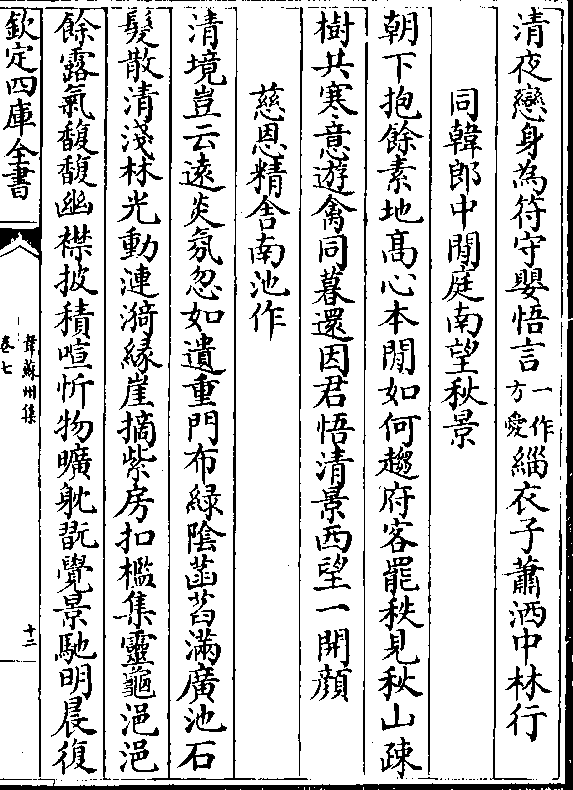 清夜戀身為符守嬰悟言一作方愛緇衣子蕭洒中林行
同韓郎中閒庭南望秋景
朝下抱餘素地髙心本閒如何趨府客罷秩見秋山疎
樹共寒意遊禽同暮還因君悟清景西望一開顏
慈恩精舎南池作
清境豈云遠炎氛忽如遺重門布緑陰菡萏滿廣池石
髮散清淺林光動漣漪縁崖摘紫房扣檻集靈龜浥浥
餘露氣馥馥幽襟披積喧忻物曠躭翫覺景馳明晨復
欽定四庫全書
韋蘇州集
卷七
十二